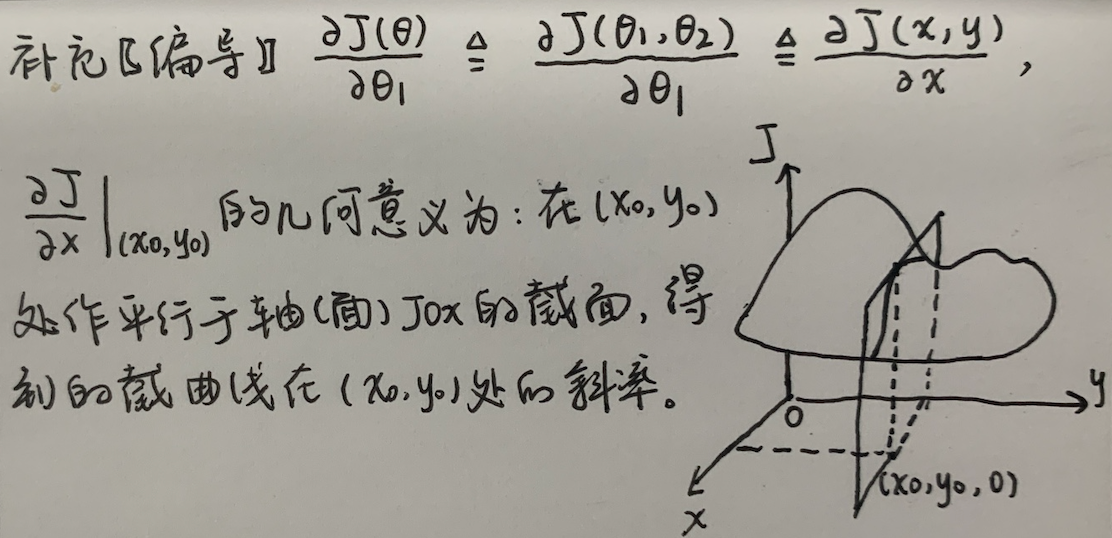 补充〖偏导〗 ∂J(θ)/∂θ₁ ≜ ∂J(θ₁,θ₂)/∂θ₁ ≜ ∂J(x,y)/∂x ,
∂J/∂x|(x₀,y₀) 的几何意义为：在(x₀,y₀)
处作平行于轴(面)JOx的截面，得
到的截曲线在(x₀,y₀)处的斜率。
J
y
O
(x₀,y₀,0)
x